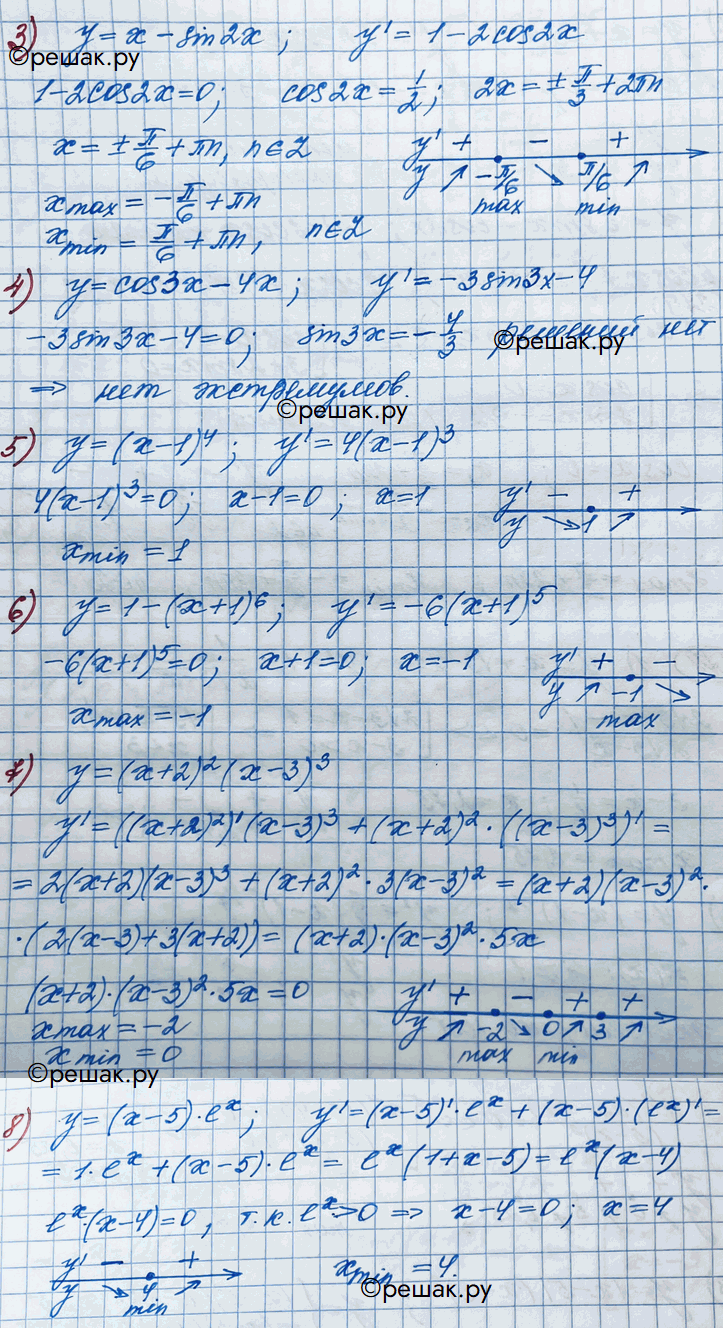 3) y = x - sin2x ; y' = 1 - 2cos2x
©решак.ру
1 - 2cos2x = 0; cos2x = 1/2; 2x = ± π/3 + 2πn
x = ± π/6 + πn, n∈Z
y' + − +
y ↗ -π/6 ↘ π/6 ↗
max min
xmax = -π/6 + πn
xmin = π/6 + πn, n∈Z
4) y = cos3x - 4x ; y' = -3sin3x - 4
-3sin3x - 4 = 0; sin3x = -4/3 решений нет
©решак.ру
⇒ нет экстремумов.
©решак.ру
5) y = (x-1)⁴ ; y' = 4(x-1)³
4(x-1)³ = 0; x-1=0 ; x=1
y' − +
y ↘ 1 ↗
xmin = 1
6) y = 1 - (x+1)⁶ ; y' = -6(x+1)⁵
-6(x+1)⁵ = 0; x+1=0; x=-1
y' + −
y ↗ -1 ↘
max
xmax = -1
7) y = (x+2)² (x-3)³
y' = ((x+2)²)' (x-3)³ + (x+2)² · ((x-3)³)' =
= 2(x+2)(x-3)³ + (x+2)² · 3(x-3)² = (x+2)(x-3)² ·
· (2(x-3)+3(x+2)) = (x+2)·(x-3)²·5x
(x+2)·(x-3)²·5x = 0
y' + − + +
y ↗ -2 ↘ 0 ↗ 3 ↗
max min
xmax = -2
xmin = 0
©решак.ру
8) y = (x-5)·eˣ ; y' = (x-5)'·eˣ + (x-5)·(eˣ)' =
= 1·eˣ + (x-5)·eˣ = eˣ(1+x-5) = eˣ(x-4)
eˣ·(x-4)=0, т.к. eˣ>0 ⇒ x-4=0; x=4
y' − +
y ↘ 4 ↗
min
xmin = 4.
©решак.ру